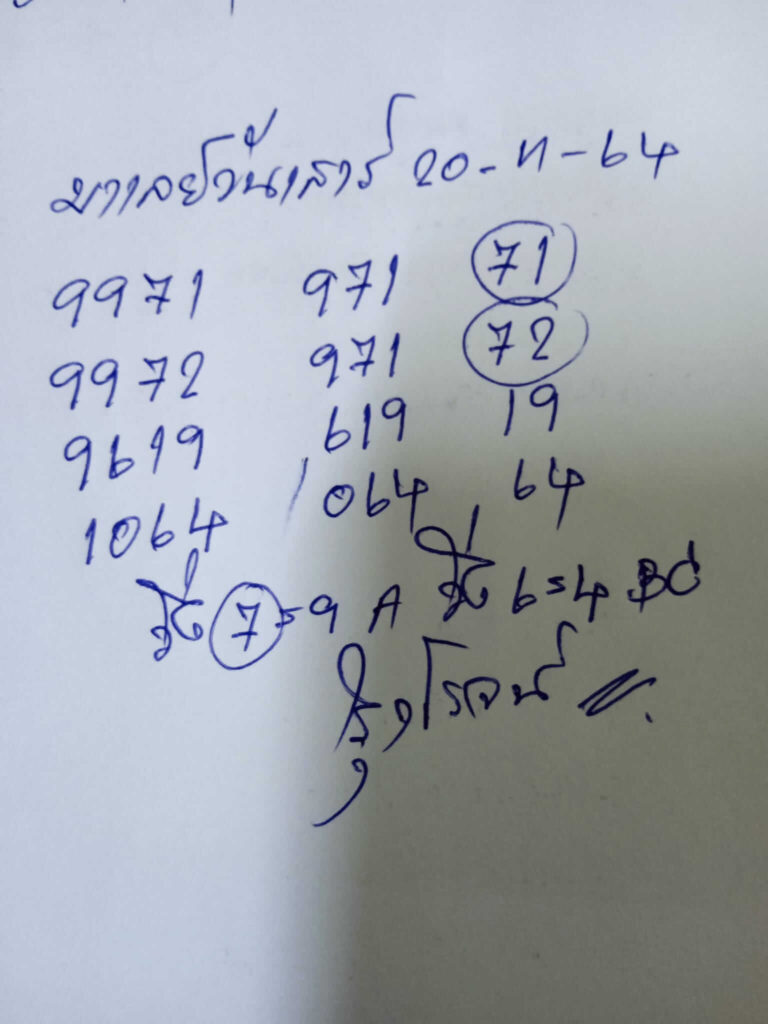 มาเลย์วันเสาร์ 20-11-64
9971 971 71
9972 971 72
9619 619 19
1064 064 64
7=9 A 6=4 BC